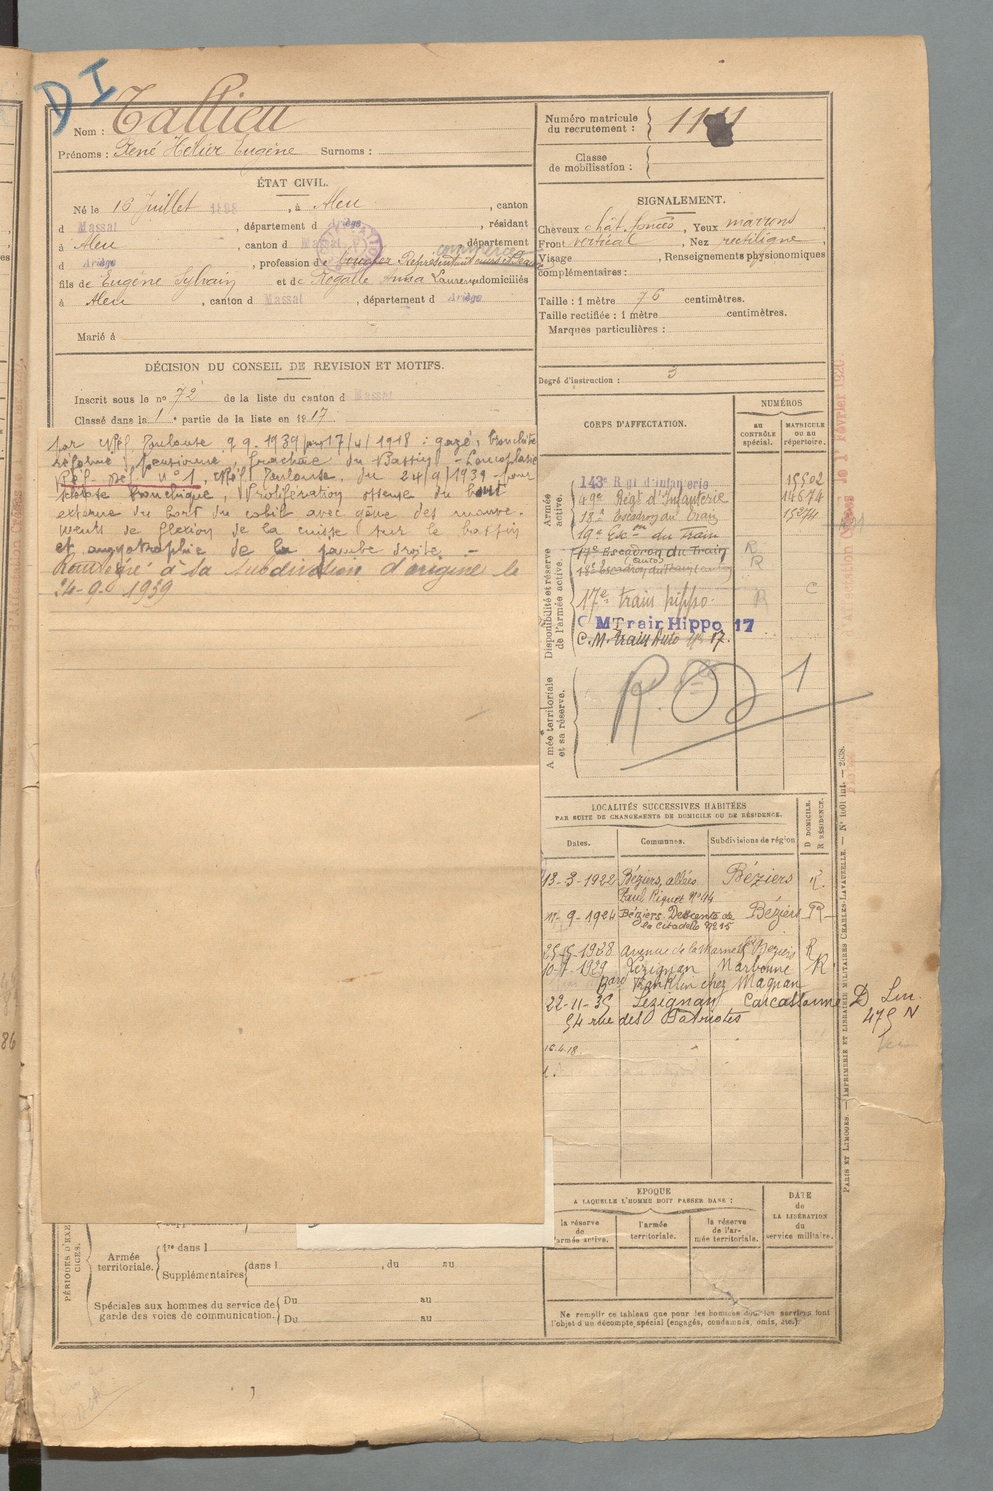 D I
Nom : Tallieu
Prénoms : René Helier Eugène Surnoms :
Numéro matricule du recrutement :
Classe de mobilisation :
ÉTAT CIVIL.
Né le 16 Juillet 1898, à Aleu, canton
d Massat, département d Ariège, résidant
à Aleu, canton d Massat, département
commerce
d Ariège, profession de Représentant
fils de Eugène Sylvain et de Rogalle Anna Laurence domiciliés
à Aleu, canton d Massat, département d Ariège
Marié à
SIGNALEMENT.
Cheveux chât. foncés, Yeux marrons
Front vertical, Nez rectiligne,
Visage , Renseignements physionomiques
complémentaires :
Taille : 1 mètre 76 centimètres.
Taille rectifiée : 1 mètre centimètres.
Marques particulières :
Degré d'instruction : 3
DÉCISION DU CONSEIL DE REVISION ET MOTIFS.
Inscrit sous le no 72 de la liste du canton d Massat
Classé dans la 1e partie de la liste en 1917.
Toulouse 1939 17/4/1918 : gazé, bronchite
réforme, pensionné fracture du Bassin
Réf. Déf. n° 1, Toulouse, du 24/9/1939 pour
sclérose bronchique, Prolifération osseuse du bout
externe du bord du cotile avec gêne des mouve-
ments de flexion de la cuisse sur le bassin
et amyotrophie de la jambe droite. -
Renvoyé à sa subdivision d'origine le
24-9-1939
CORPS D'AFFECTATION.
NUMÉROS
au CONTRÔLE spécial.
MATRICULE ou au répertoire.
Armée active.
143e Rgt d'infanterie 15502
49e Régt d'Infanterie 14674
18e Escadron du train
19e Esc. on du Train
Disponibilité et réserve de l'armée active.
17e Escadron du Train R
18e Escadron du Train (auto) R
17e train hippo. R C
C M Train Hippo 17
C.M. train Auto n° 17.
Armée territoriale et sa réserve.
1
LOCALITÉS SUCCESSIVES HABITÉES
PAR SUITE DE CHANGEMENTS DE DOMICILE OU DE RÉSIDENCE.
Dates. Communes. Subdivisions de région D DOMICILE. R RÉSIDENCE.
13-3-1922 Béziers, allées Béziers R.
Paul Riquet N°44
11-9-1924 Béziers. Descente de Béziers R
la Citadelle N° 15
25-5-1928 avenue de la Marne Béziers R
1929 Lézignan Narbonne R
Bard Franklin chez Magnan
22-11-35 Lézignan Carcassonne D
54 rue des Patriotes
16.4.18.
EPOQUE
A LAQUELLE L'HOMME DOIT PASSER DANS :
la réserve de l'armée active.
l'armée territoriale.
la réserve de l'armée territoriale.
DATE de LA LIBÉRATION du service militaire.
PÉRIODES D'EXERCICES.
Armée territoriale.
1re dans l
Supplémentaires dans l , du au
Spéciales aux hommes du service de garde des voies de communication.
Du au
Du au
Ne remplir ce tableau que pour les hommes dont les services font
l'objet d'un décompte spécial (engagés, condamnés, omis, etc.)
PARIS ET LIMOGES. — IMPRIMERIE ET LIBRAIRIE MILITAIRES CHARLES-LAVAUZELLE. — N° 1001 int. — 2638.
86